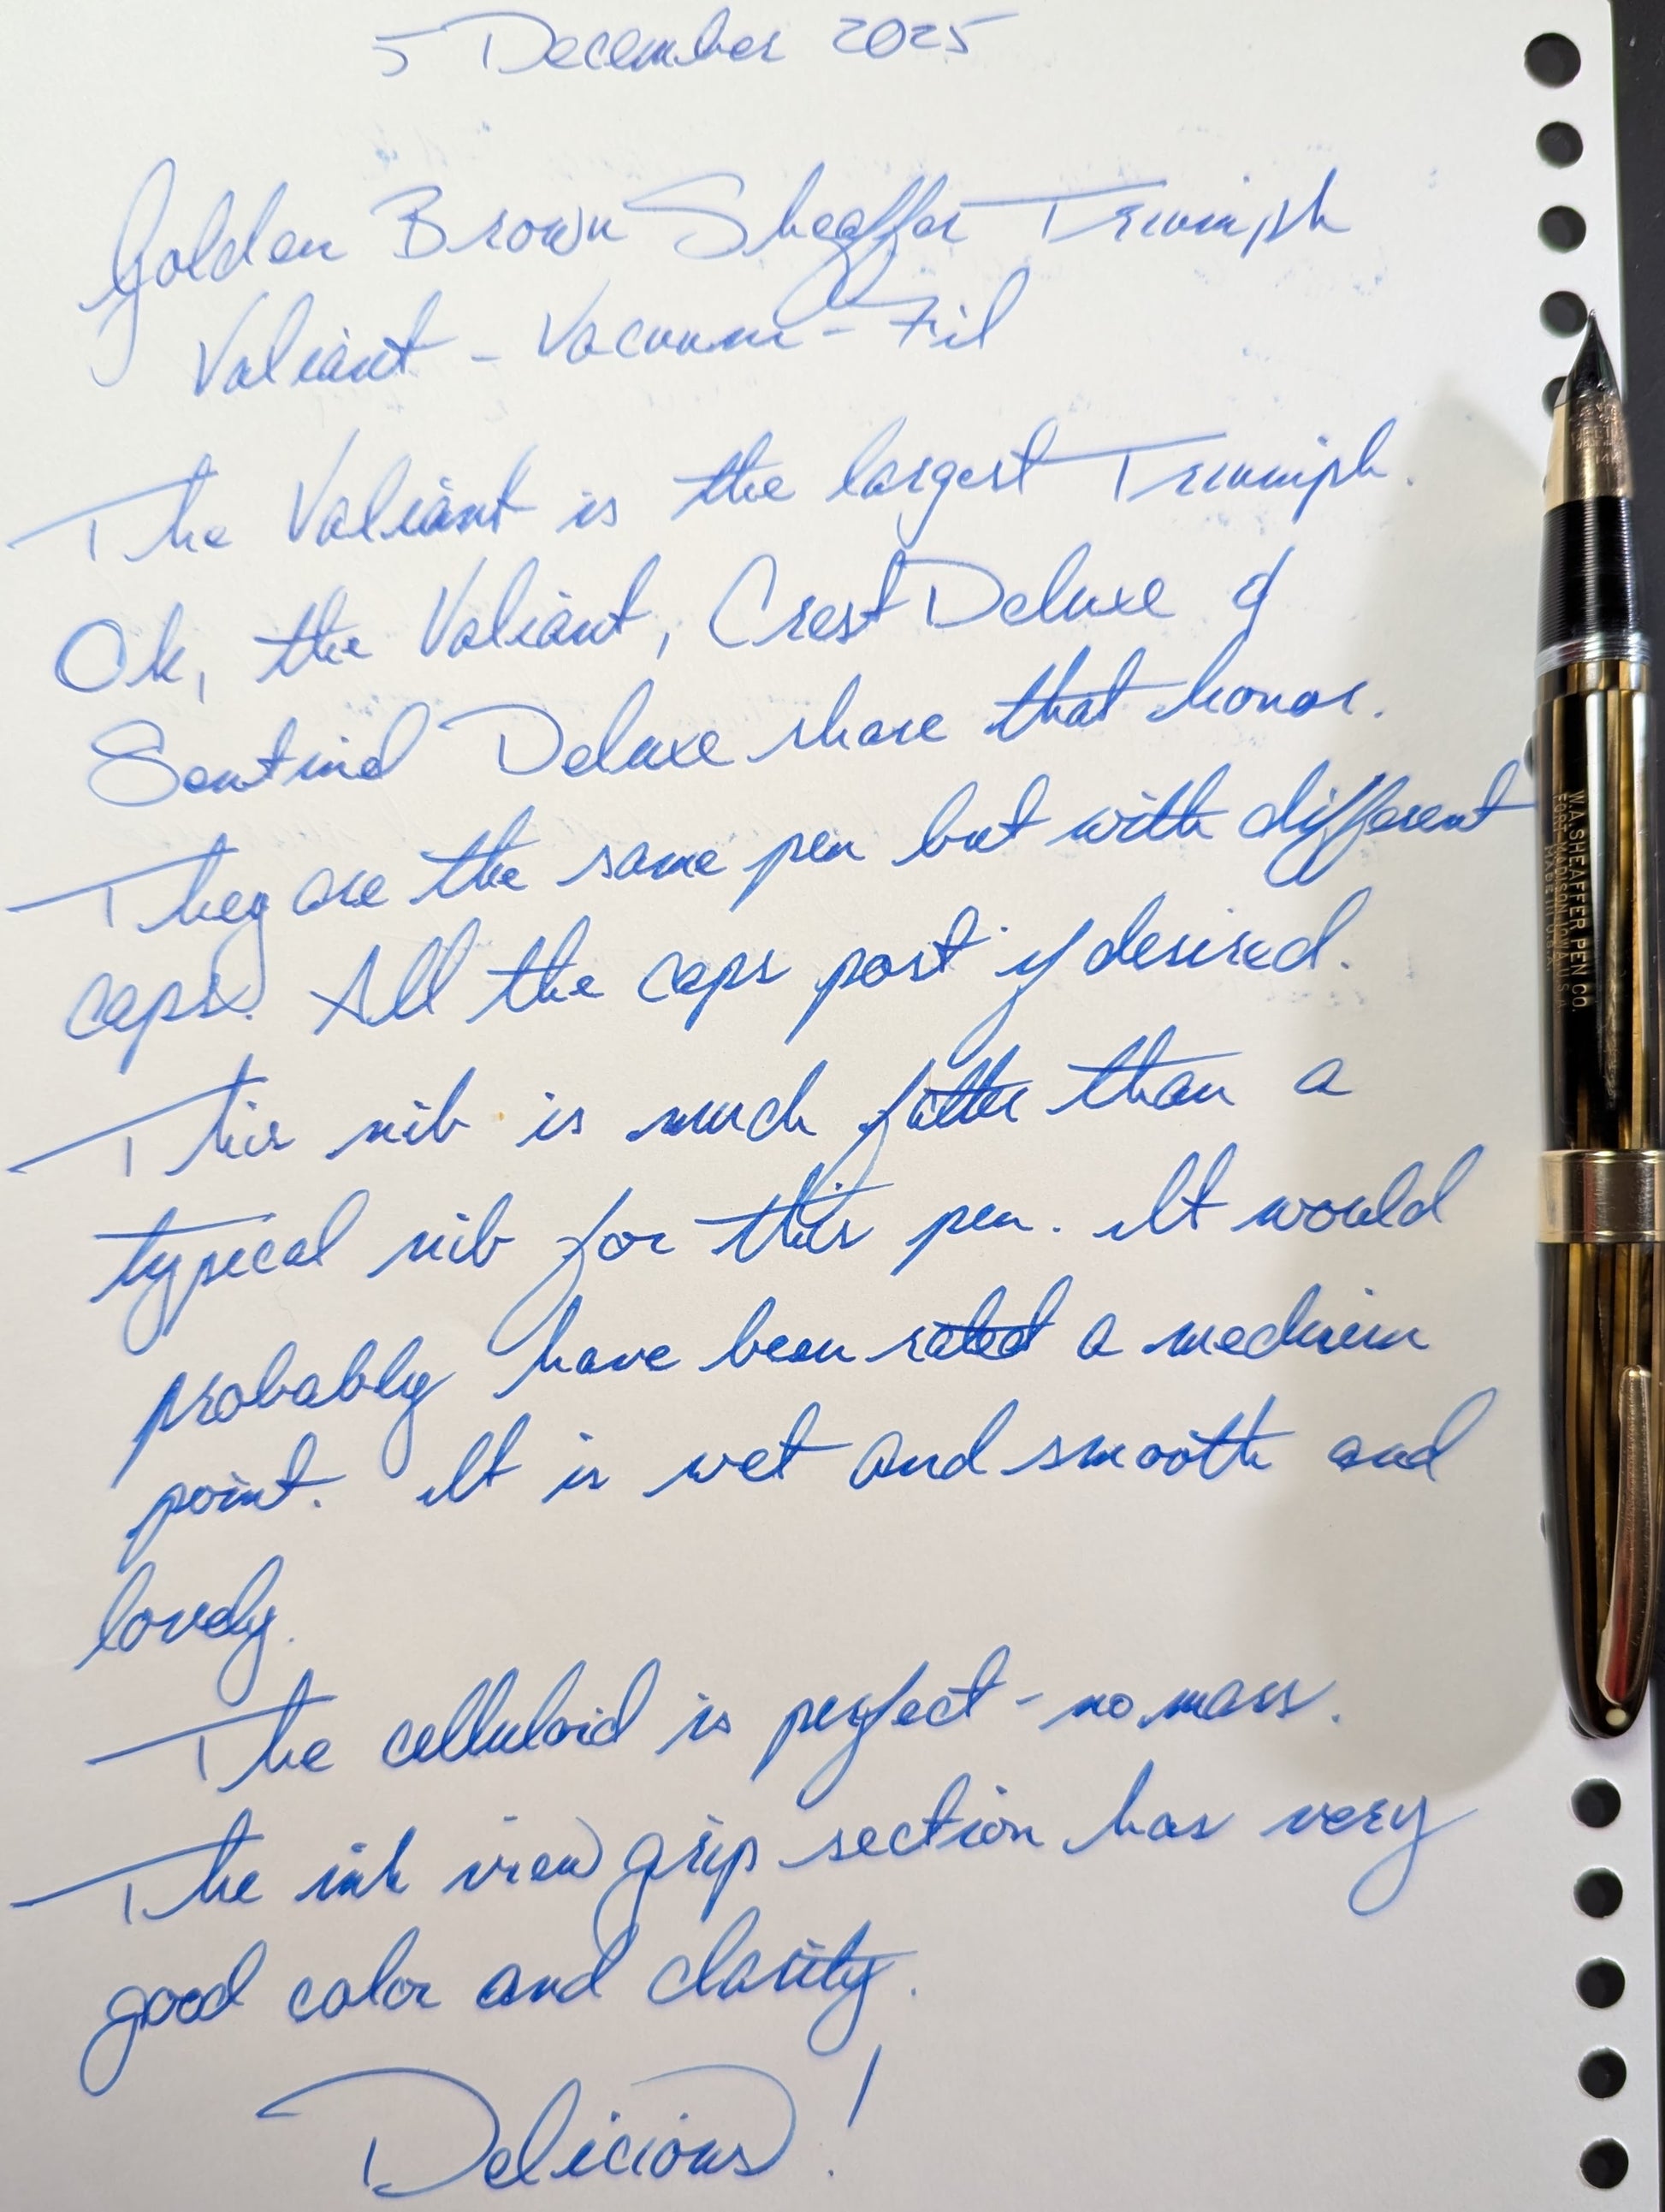 5 December 2025
Golden Brown Sheaffer Triumph
Valiant - Vacuum-Fil
The Valiant is the largest Triumph.
Ok, the Valiant, Crest Deluxe &
Sentinel Deluxe share that honor.
They are the same pen but with different
caps. All the caps post if desired.
This nib is much fatter than a
typical nib for this pen. It would
probably have been rated a medium
point. It is wet and smooth and
lovely.
The celluloid is perfect - no mars.
The ink view grip section has very
good color and clarity.
Delicious!
W.A. SHEAFFER PEN CO.
FORT MADISON, IOWA, U.S.A.
MADE IN U.S.A.
14K